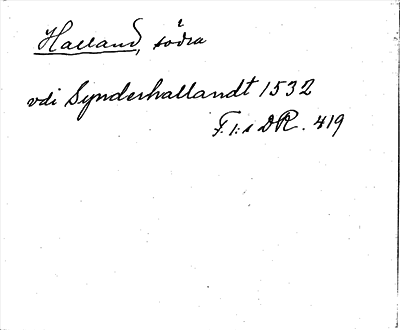 Halland, södra
vdi Synderhallandt 1532
F. 1:s DR. 419